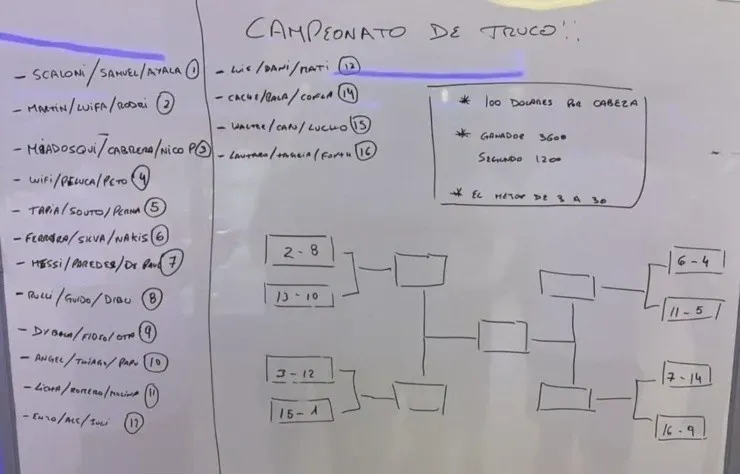 CAMPEONATO DE TRUCO!!
- SCALONI/SAMUEL/AYALA 1
- MARTIN/LUIFA/RODRI 2
/CABRERA/NICO P 3
- WIFI/PELUCA/PETO 4
- TAPIA/SOUTO/PERNA 5
- FERREIRA/SILVA/NAKIS 6
- MESSI/PAREDES/DE PAUL 7
- RULLI/GUIDO/DIBU 8
- DYBALA/FIDEO/OTA 9
- ANGEL/THIAGO/PAPU 10
- LICHA/ROMERO/MOLINA 11
- ENZO/ALE/JULI 12
- LUIS/DANI/MATI 13
- CACHE/PALA/ 14
- WALTER/CANI/LUCHO 15
- LAUTARO/ 16
* 100 DOLARES POR CABEZA
* GANADOR 3600
SEGUNDO 1200
* EL MEJOR DE 3 A 30
2-8
13-10
3-12
15-1
6-4
11-5
7-14
16-9